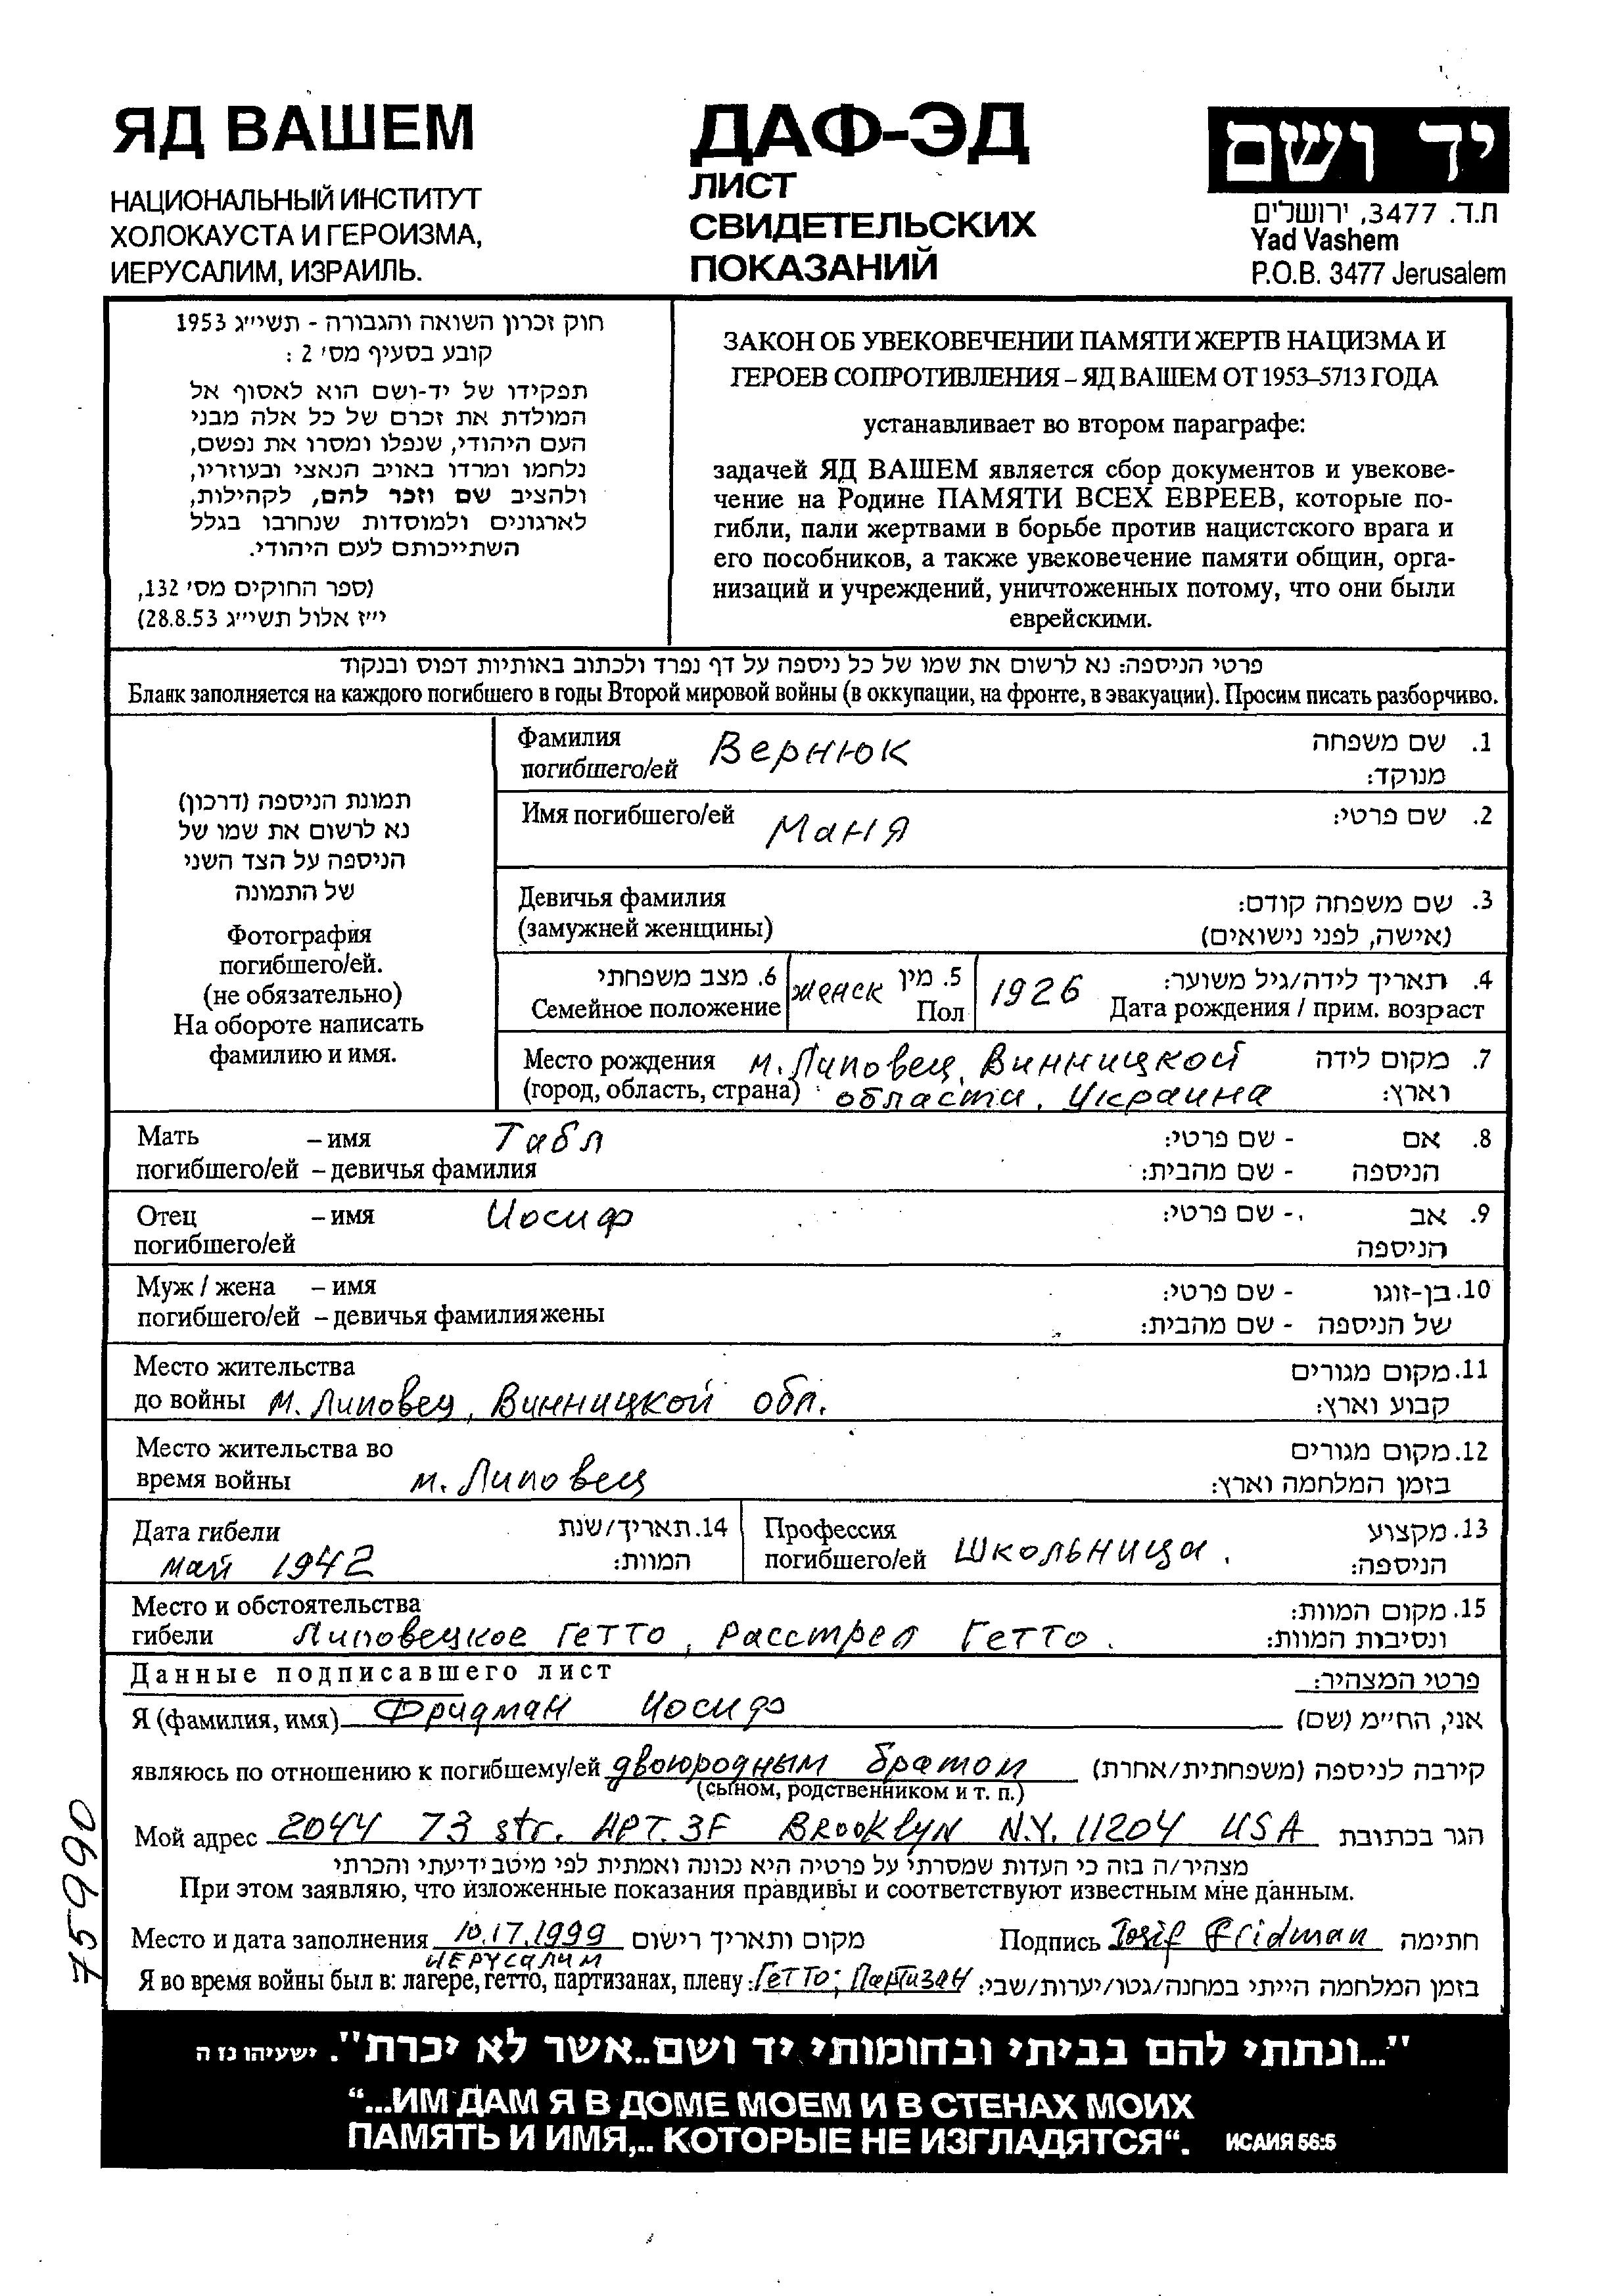 ЯД ВАШЕМ
НАЦИОНАЛЬНЫЙ ИНСТИТУТ
ХОЛОКАУСТА И ГЕРОИЗМА,
ИЕРУСАЛИМ, ИЗРАИЛЬ.
ДАФ-ЭД
ЛИСТ
СВИДЕТЕЛЬСКИХ
ПОКАЗАНИЙ
יד ושם
ת.ד. 3477, ירושלים
Yad Vashem
P.O.B. 3477 Jerusalem
חוק זכרון השואה והגבורה - תשי"ג 1953
קובע בסעיף מס' 2 :
תפקידו של יד-ושם הוא לאסוף אל
המולדת את זכרם של כל אלה מבני
העם היהודי, שנפלו ומסרו את נפשם,
נלחמו ומרדו באויב הנאצי ובעוזריו,
ולהציב שם וזכר להם, לקהילות,
לארגונים ולמוסדות שנחרבו בגלל
השתייכותם לעם היהודי.
(ספר החוקים מס' 132,
י"ז אלול תשי"ג 28.8.53)
ЗАКОН ОБ УВЕКОВЕЧЕНИИ ПАМЯТИ ЖЕРТВ НАЦИЗМА И
ГЕРОЕВ СОПРОТИВЛЕНИЯ – ЯД ВАШЕМ ОТ 1953–5713 ГОДА
устанавливает во втором параграфе:
задачей ЯД ВАШЕМ является сбор документов и увекове-
чение на Родине ПАМЯТИ ВСЕХ ЕВРЕЕВ, которые по-
гибли, пали жертвами в борьбе против нацистского врага и
его пособников, а также увековечение памяти общин, орга-
низаций и учреждений, уничтоженных потому, что они были
еврейскими.
פרטי הניספה: נא לרשום את שמו של כל ניספה על דף נפרד ולכתוב באותיות דפוס ובנקוד
Бланк заполняется на каждого погибшего в годы Второй мировой войны (в оккупации, на фронте, в эвакуации). Просим писать разборчиво.
תמונת הניספה (דרכון)
נא לרשום את שמו של
הניספה על הצד השני
של התמונה
Фотография
погибшего/ей.
(не обязательно)
На обороте написать
фамилию и имя.
Фамилия Вернюк 1. שם משפחה
погибшего/ей מנוקד:
Имя погибшего/ей Маня 2. שם פרטי:
Девичья фамилия 3. שם משפחה קודם:
(замужней женщины) (אישה, לפני נישואים)
6. מצב משפחתי женск 5. מין 1926 4. תאריך לידה/גיל משוער:
Семейное положение Пол Дата рождения / прим. возраст
Место рождения м. Липовец, Винницкой 7. מקום לידה
(город, область, страна) области, Украина וארץ:
Мать – имя Табл - שם פרטי: 8. אם
погибшего/ей – девичья фамилия - שם מהבית: הניספה
Отец – имя Иосиф - שם פרטי: 9. אב
погибшего/ей הניספה
Муж / жена – имя - שם פרטי: 10. בן-זוגו
погибшего/ей – девичья фамилия жены - שם מהבית: של הניספה
Место жительства 11. מקום מגורים
до войны м. Липовец, Винницкой обл. קבוע וארץ:
Место жительства во 12. מקום מגורים
время войны м. Липовец בזמן המלחמה וארץ:
Дата гибели 14. תאריך/שנת Профессия 13. מקצוע
май 1942 המוות: погибшего/ей Школьница. הניספה:
Место и обстоятельства 15. מקום המוות:
гибели Липовецкое гетто, расстрел гетто. ונסיבות המוות:
Данные подписавшего лист פרטי המצהיר:
Я (фамилия, имя) Фридман Иосиф אני, החי"מ (שם)
являюсь по отношению к погибшему/ей двоюродным братом קירבה לניספה (משפחתית/אחרת)
(сыном, родственником и т. п.)
Мой адрес 2044 73 str. APT. 3F Brooklyn N.Y. 11204 USA הגר בכתובת
מצהיר/ה בזה כי העדות שמסרתי על פרטיה היא נכונה ואמתית לפי מיטב ידיעתי והכרתי
При этом заявляю, что изложенные показания правдивы и соответствуют известным мне данным.
Место и дата заполнения 10.17.1999 מקום ותאריך רישום Подпись Iosif Fridman חתימה
ИЕРУСАЛИМ
Я во время войны был в: лагере, гетто, партизанах, плену: Гетто; Партизан בזמן המלחמה הייתי במחנה/גטו/יערות/שבי:
75990
"...ונתתי להם בביתי ובחומותי יד ושם..אשר לא יכרת". ישעיהו נז ה
“...ИМ ДАМ Я В ДОМЕ МОЕМ И В СТЕНАХ МОИХ
ПАМЯТЬ И ИМЯ,.. КОТОРЫЕ НЕ ИЗГЛАДЯТСЯ“. ИСАИЯ 56:5